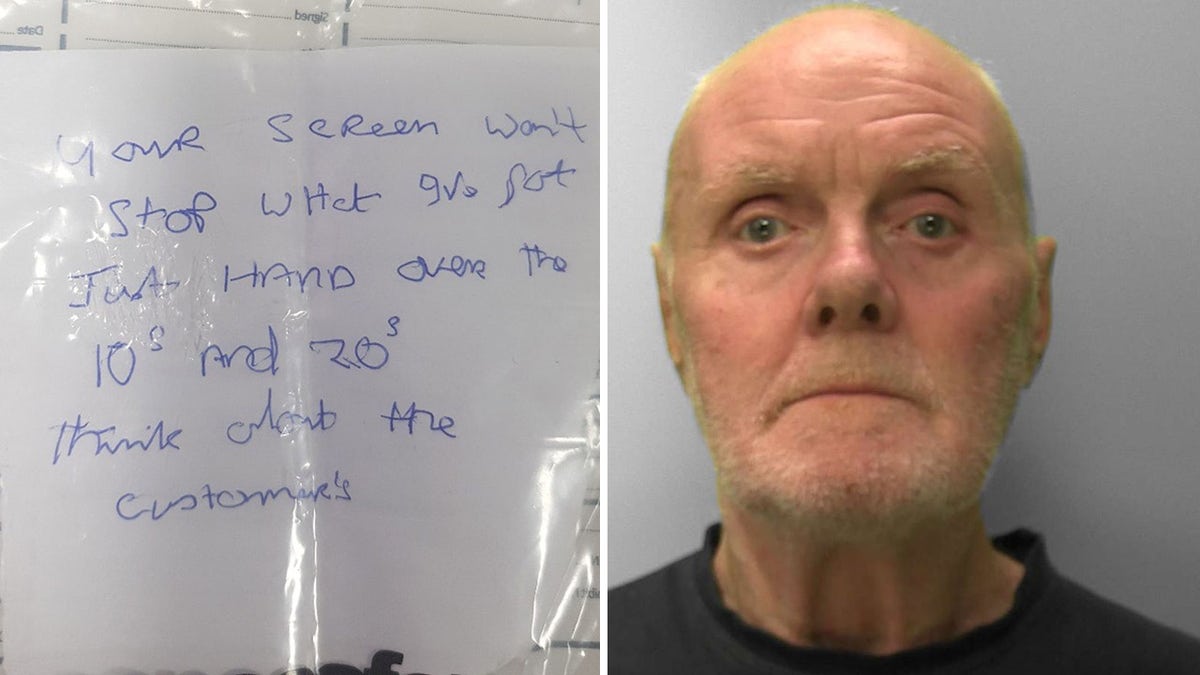 Date
Signed
YOUR SCREEN Won't
STOP WHAt ive got
Just HAND over the
10s And 20s
think about the
customer's